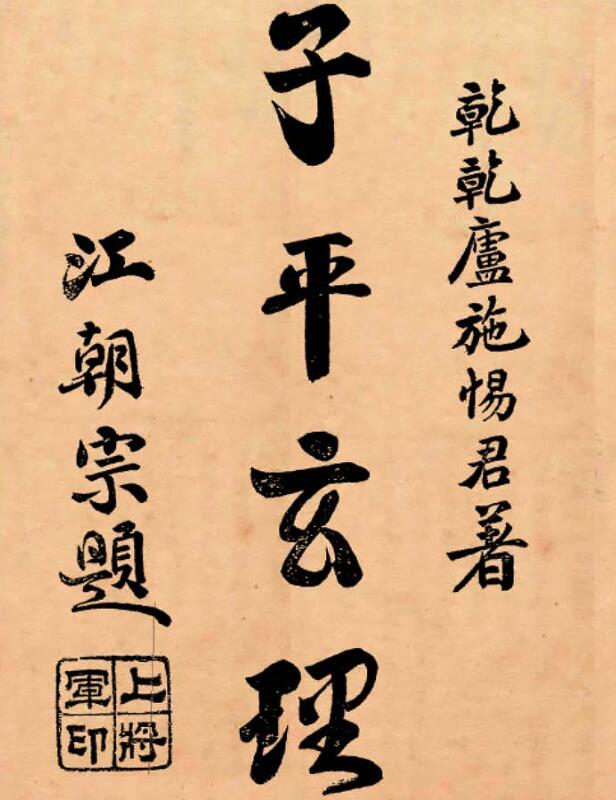 乾乾廬施惕君著
子平玄理
江朝宗題
上將軍印